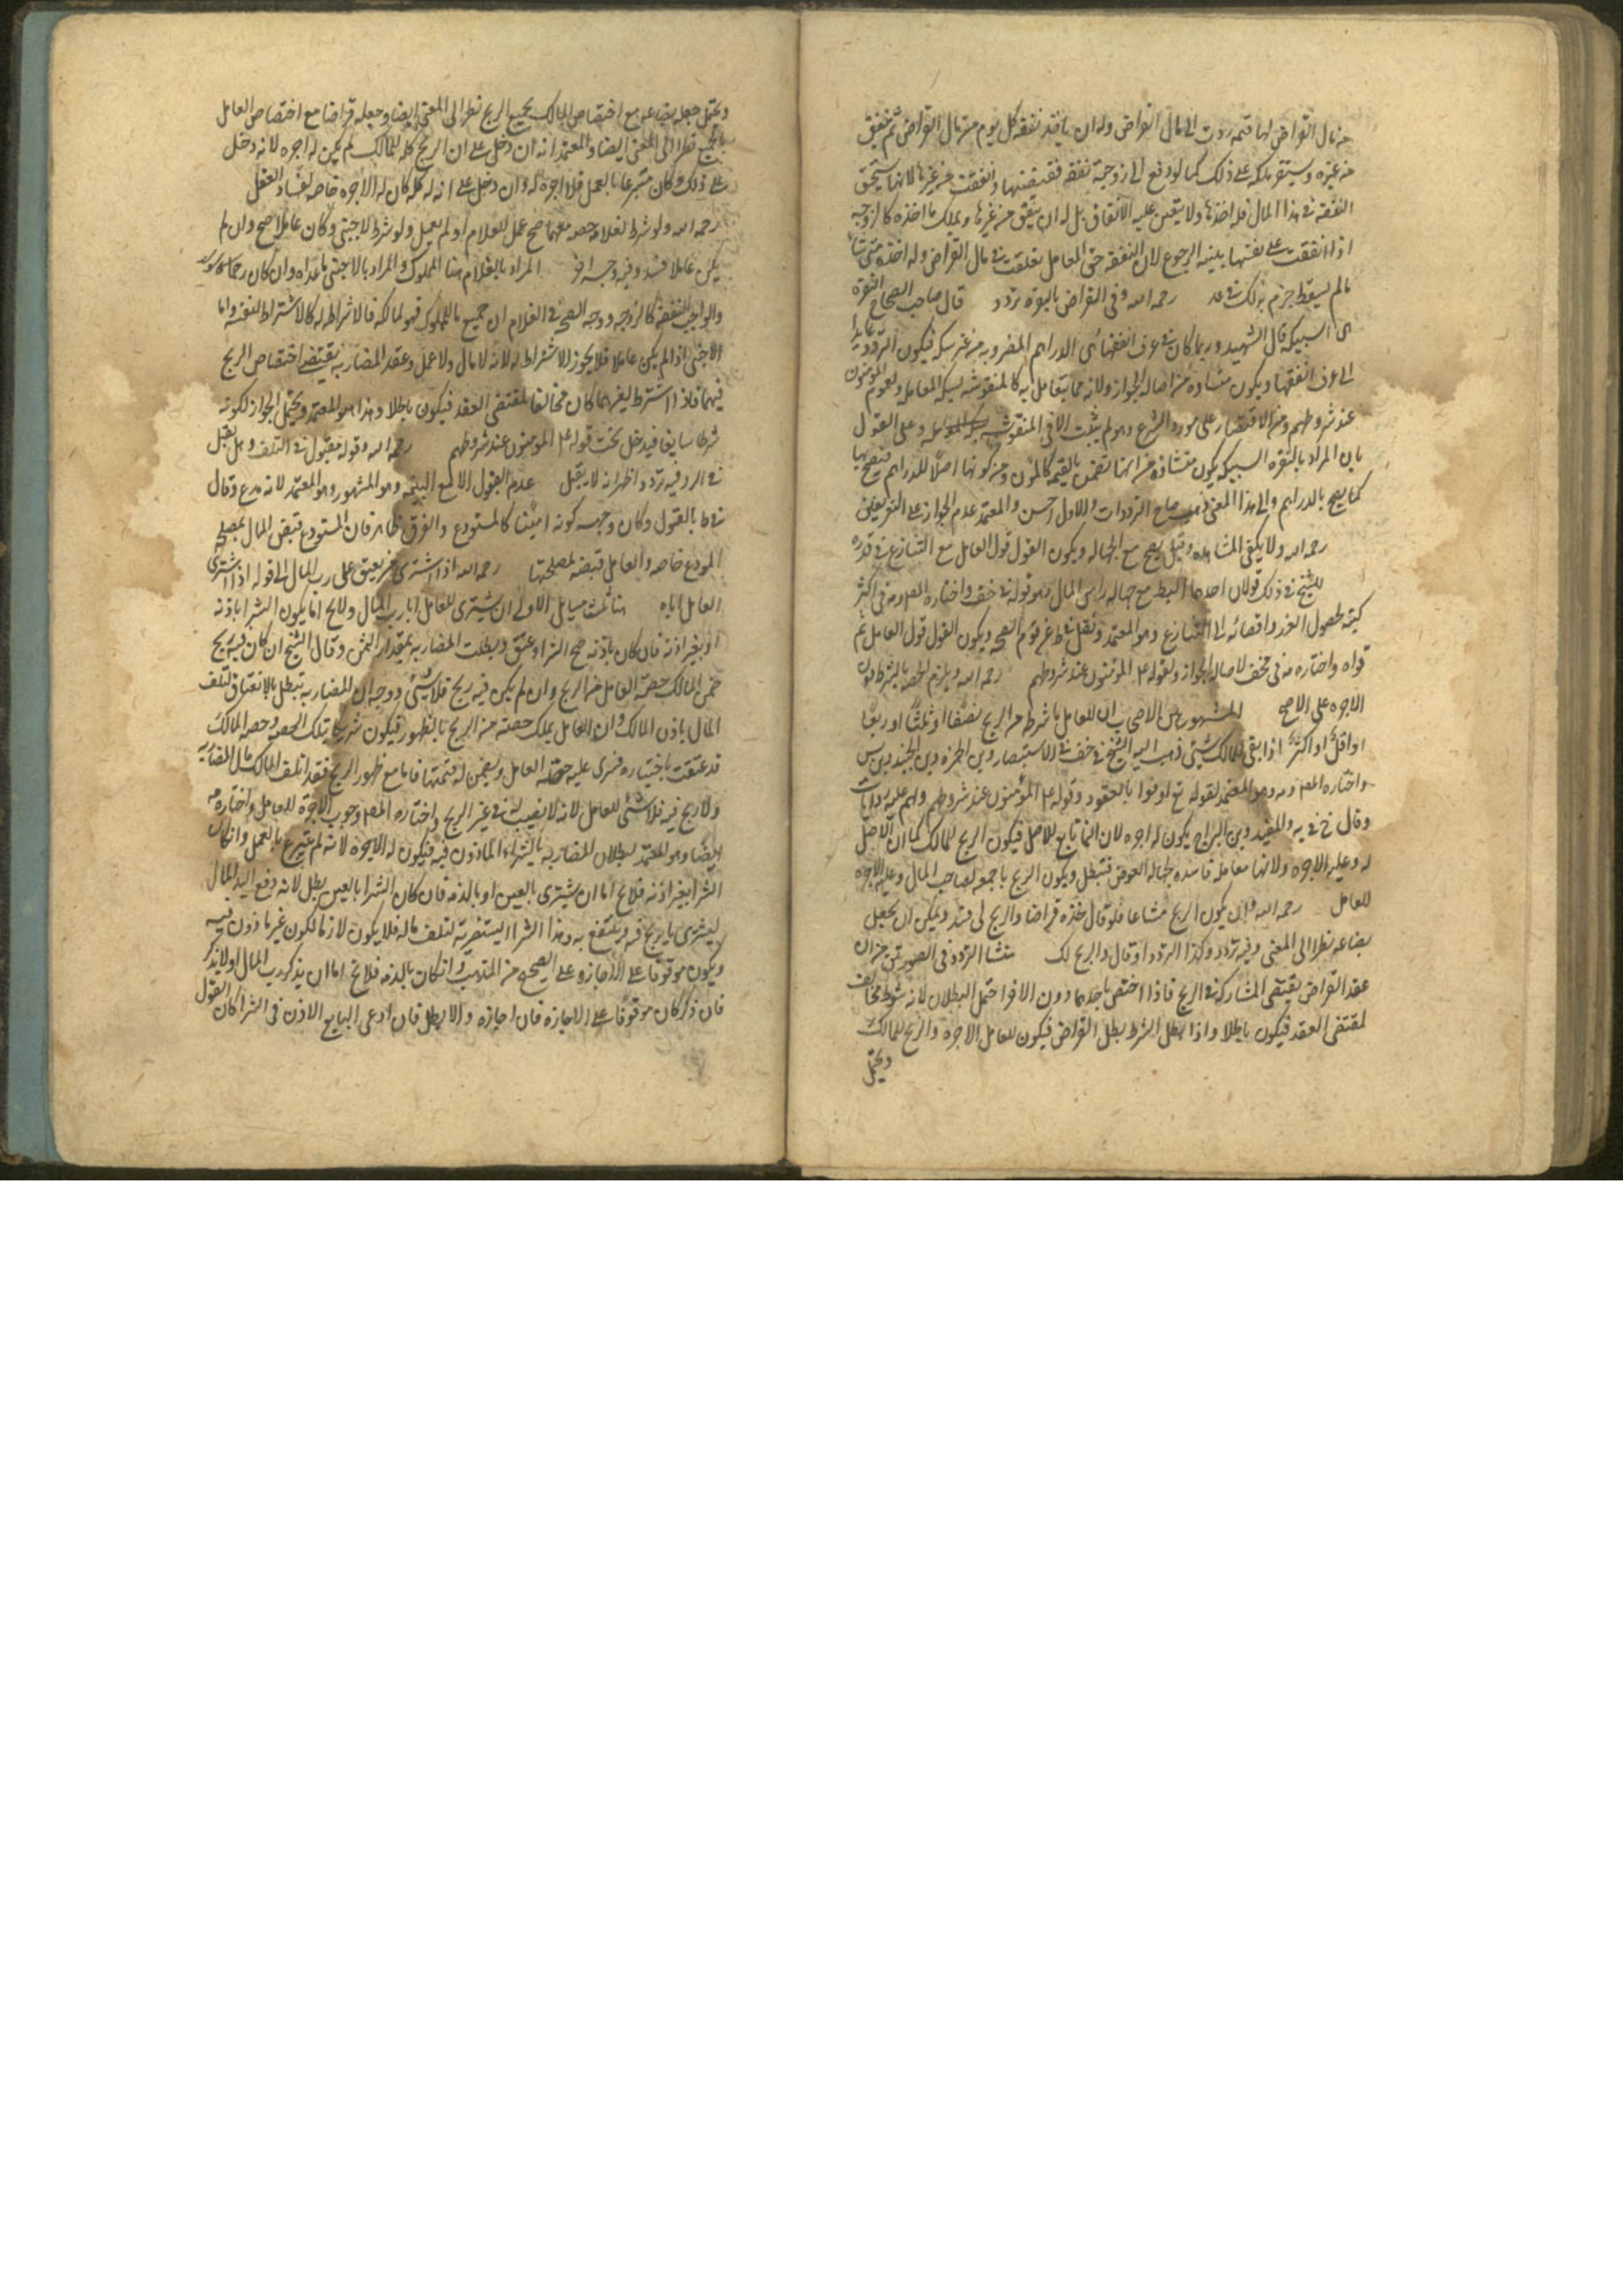 من مال القراض لها قيمه ردت الى مال القراض وله ان ياخذ نفقه كل يوم من مال القراض ثم ينفق
من غيره ويستقر ملكه على ذلك كما لو دفع الى زوجته نفقه فقبضتها وانفقت من غيرها لانها تستحق
النفقه في هذا المال فله اخذها ولا يتعين عليه الانفاق بل له ان ينفق من غيرها ويملك ما اخذه كالزوجه
اذا انفقت على نفسها بنيه الرجوع لان النفقه حق العامل تعلقت في مال القراض وله اخذه متى شاء
مالم يسقط جزم بذلك في عد رحمه الله وفي القراض بالنقره تردد قال صاحب الصحاح النقره
هي السبيكه قال الشهيد وربما كان في عرف الفقهاء هي الدراهم المضروبه من غير سكه فيكون التردد عايدا
الى عرف الفقهاء ويكون منشاوه من اصاله الجواز ولانه مما يتعامل به كالمنقوشه بسكه المعامله ولعموم المؤمنون
عند شروطهم ومن الاقتصار على مورد الشرع وهو لم يثبت الا في المنقوشه وعلى القول
بان المراد بالنقره السبيكه يكون منشاؤه من انها تضمن بالقيمه كالمتمون ومن كونها اصلا للدراهم فتصح بها
كما يصح بالدراهم والى هذا المعنى صاح الترددات والاول احسن والمعتمد عدم الجواز على التفريعين
رحمه الله ولا يكفي المشاهده وقيل يصح مع الجهاله ويكون القول قول العامل مع التنازع في قدره
للشيخ في ذلك قولان احدهما البطلان مع جهاله راس المال وهو قوله في خف واختاره المصنف ومنه في اكثر
كتبه لحصول الغرر وافضائه الى التنازع وهو المعتمد ونقل في ط عن قوم الصحه ويكون القول قول العامل ثم
قواه واختاره منه في مختلف لاصاله الجواز ولقوله ع المؤمنون عند شروطهم رحمه الله ويلزم الحصه بالشرط دون
الاجره على الاصح المشهور بين الاصحاب ان للعامل ما شرط من الربح نصفا او ثلثا او ربعا
او اقل او اكثر اذا بقي للمالك شيئ ذهب اليه الشيخ في خف في الاستبصار وبن الحمزه وبن الجنيد وبن س
واختاره المصنف ومنه وهو المعتمد لقوله تع اوفوا بالعقود وقوله ع المؤمنون عند شروطهم ولهم عليه روايات
وقال خ في يه والمفيد وبن البراج يكون له اجره لان النما تابع للاصل فيكون الربح للمالك كما ان الاصل
له وعليه الاجره ولانها معامله فاسده لجهاله العوض فتبطل ويكون الربح باجمعه لصاحب المال وعليه الاجره
للعامل رحمه الله وان يكون الربح مشاعا فلو قال خذه قراضا والربح لي فسد ويمكن ان يجعل
بضاعه نظرا الى المعنى وفيه تردد وكذا التردد لو قال والربح لك منشا التردد في الصورتين من ان
عقد القراض يقتضي المشاركه في الربح فاذا اختص باحدهما دون الاخر احتمل البطلان لانه شرط مخالف
لمقتضى العقد فيكون باطلا واذا بطل الشرط بطل القراض فيكون للعامل الاجره والربح للمالك
ويحتمل
ويحتمل جعله بضاعه مع اختصاص المالك بجميع الربح نظرا الى المعنى ايضا وجعله قراضا مع اختصاص العامل
بالجميع نظرا الى المعنى ايضا والمعتمد انه ان دخل على ان الربح كله للمالك لم يكن له اجره لانه دخل
على ذلك وكان متبرعا بالعمل فلا اجره له وان دخل على انه له كله كان له الاجره خاصه لفساد العقد
رحمه الله ولو شرط لغلامه حصه معهما صح عمل الغلام او لم يعمل ولو شرط لاجنبي وكان عاملا صح وان لم
يكن عاملا فسد وفيه وجه اخر المراد بالغلام هنا المملوك والمراد بالاجنبي ما عداه وان كان رحما
والواجب النفقه كالزوجه ووجه الصحه في الغلام ان جميع ما للمملوك فهو لمالكه فالاشتراط له كالاشتراط لنفسه واما
الاجنبي اذا لم يكن عاملا فلا يجوز الاشتراط له لانه لا مال ولا عمل وعقد المضاربه يقتضي اختصاص الربح
فيهما فاذا اشترط لغيرهما كان مخالفا لمقتضى العقد فيكون باطلا وهذا هو المعتمد ويحتمل الجواز لكونه
شرطا سايغا فيدخل تحت قوله ع المومنون عند شروطهم رحمه الله وقوله مقبول في التلف وهل يقبل
في الرد فيه تردد اظهره انه لا يقبل عدم القبول الا مع البينه وهو المشهور وهو المعتمد لانه مدع وقال
في ط بالقبول وكان وجهه كونه امينا كالمستودع والفرق ظاهر فان المستودع قبض المال لمصلحه
المودع خاصه والعامل قبضه لمصلحتها رحمه الله اذا اشترى من يعتق على رب المال الى قوله اذا اشترى
العامل اباه هنا ثلث مسايل الاولى ان يشتري للعامل ابا رب المال ولايخ اما يكون الشرا باذنه
او بغير اذنه فان كان باذنه صح الشرا وعتق وبطلت المضاربه بمقدار الثمن وقال الشيخ ان كان فيه ربح
ضمن المالك حصه العامل من الربح وان لم يكن فيه ربح فلا شيئ ووجه ان المضاربه تبطل بالانعتاق لتلف
المال باذن المالك وان العامل يملك حصته من الربح بالظهور فيكون شريكا بتلك الحصه وحصه المالك
قد عتقت باختياره فسرى عليه حصه العامل ويضمن له قيمتها فاما مع ظهور الربح فقد اتلف المالك مال المضاربه
ولا ربح فيه فلا شئ للعامل لانه لا نصيب له في غير الربح واختاره المصنف وجوب الاجرة للعامل واختاره منه
ايضا وهو المعتمد لبطلان المضاربه بالشراء الماذون فيه فيكون له الاجره لانه لم يتبرع بالعمل وان كان
الشرا بغير اذنه فلايخ اما ان يشتري بالعين او بالذمه فان كان الشرا بالعين بطل لانه دفع اليه المال
ليشتري ما يربح فيه وينتفع به وهذا الشرا يستضر به لتلف ماله فلا يكون لازما لكونه غير ماذون فيه
ويكون موقوفا على الاجازه على الصحيح من المذهب وان كان بالذمه فلايخ اما ان يذكر رب المال او لا يذكر
فان ذكر كان موقوفا على الاجازه فان اجازه والا بطل فان ادعى البايع الاذن في الشرا كان القول